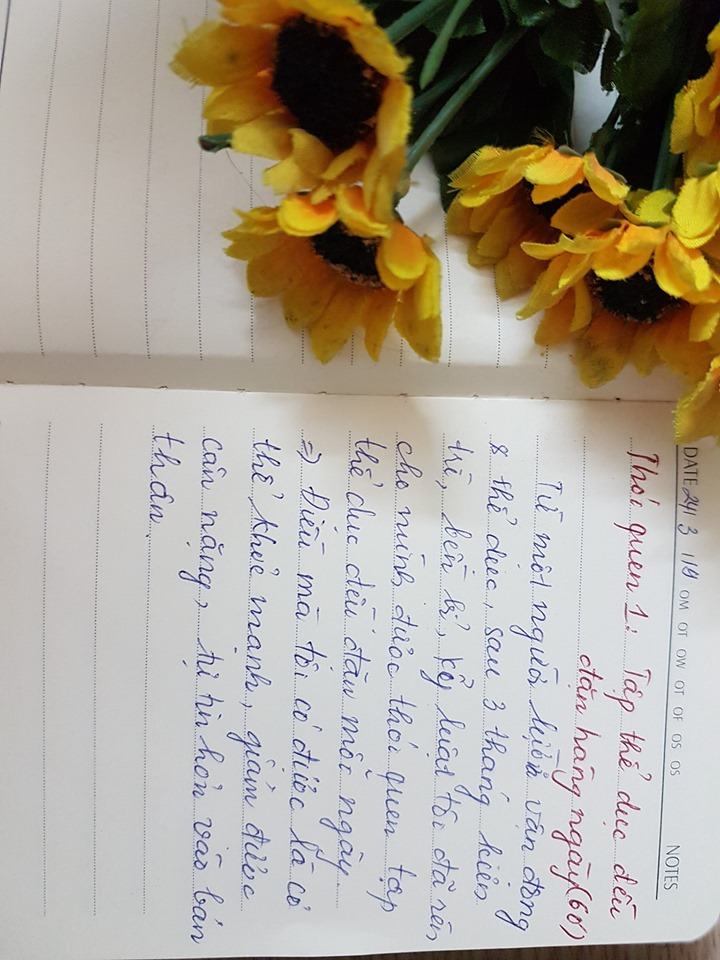 DATE 24 / 3 / 19 OM OT OW OT OF OS OS NOTES
Thói quen 1: Tập thể dục đều
đặn hàng ngày (60')
Từ một người lười vận động
& thể dục, sau 3 tháng kiên
trì, bền bỉ, kỷ luật tôi đã rèn
cho mình được thói quen tập
thể dục đều đặn mỗi ngày.
=> Điều mà tôi có được là cơ
thể khỏe mạnh, giảm được
cân nặng, tự tin hơn vào bản
thân.